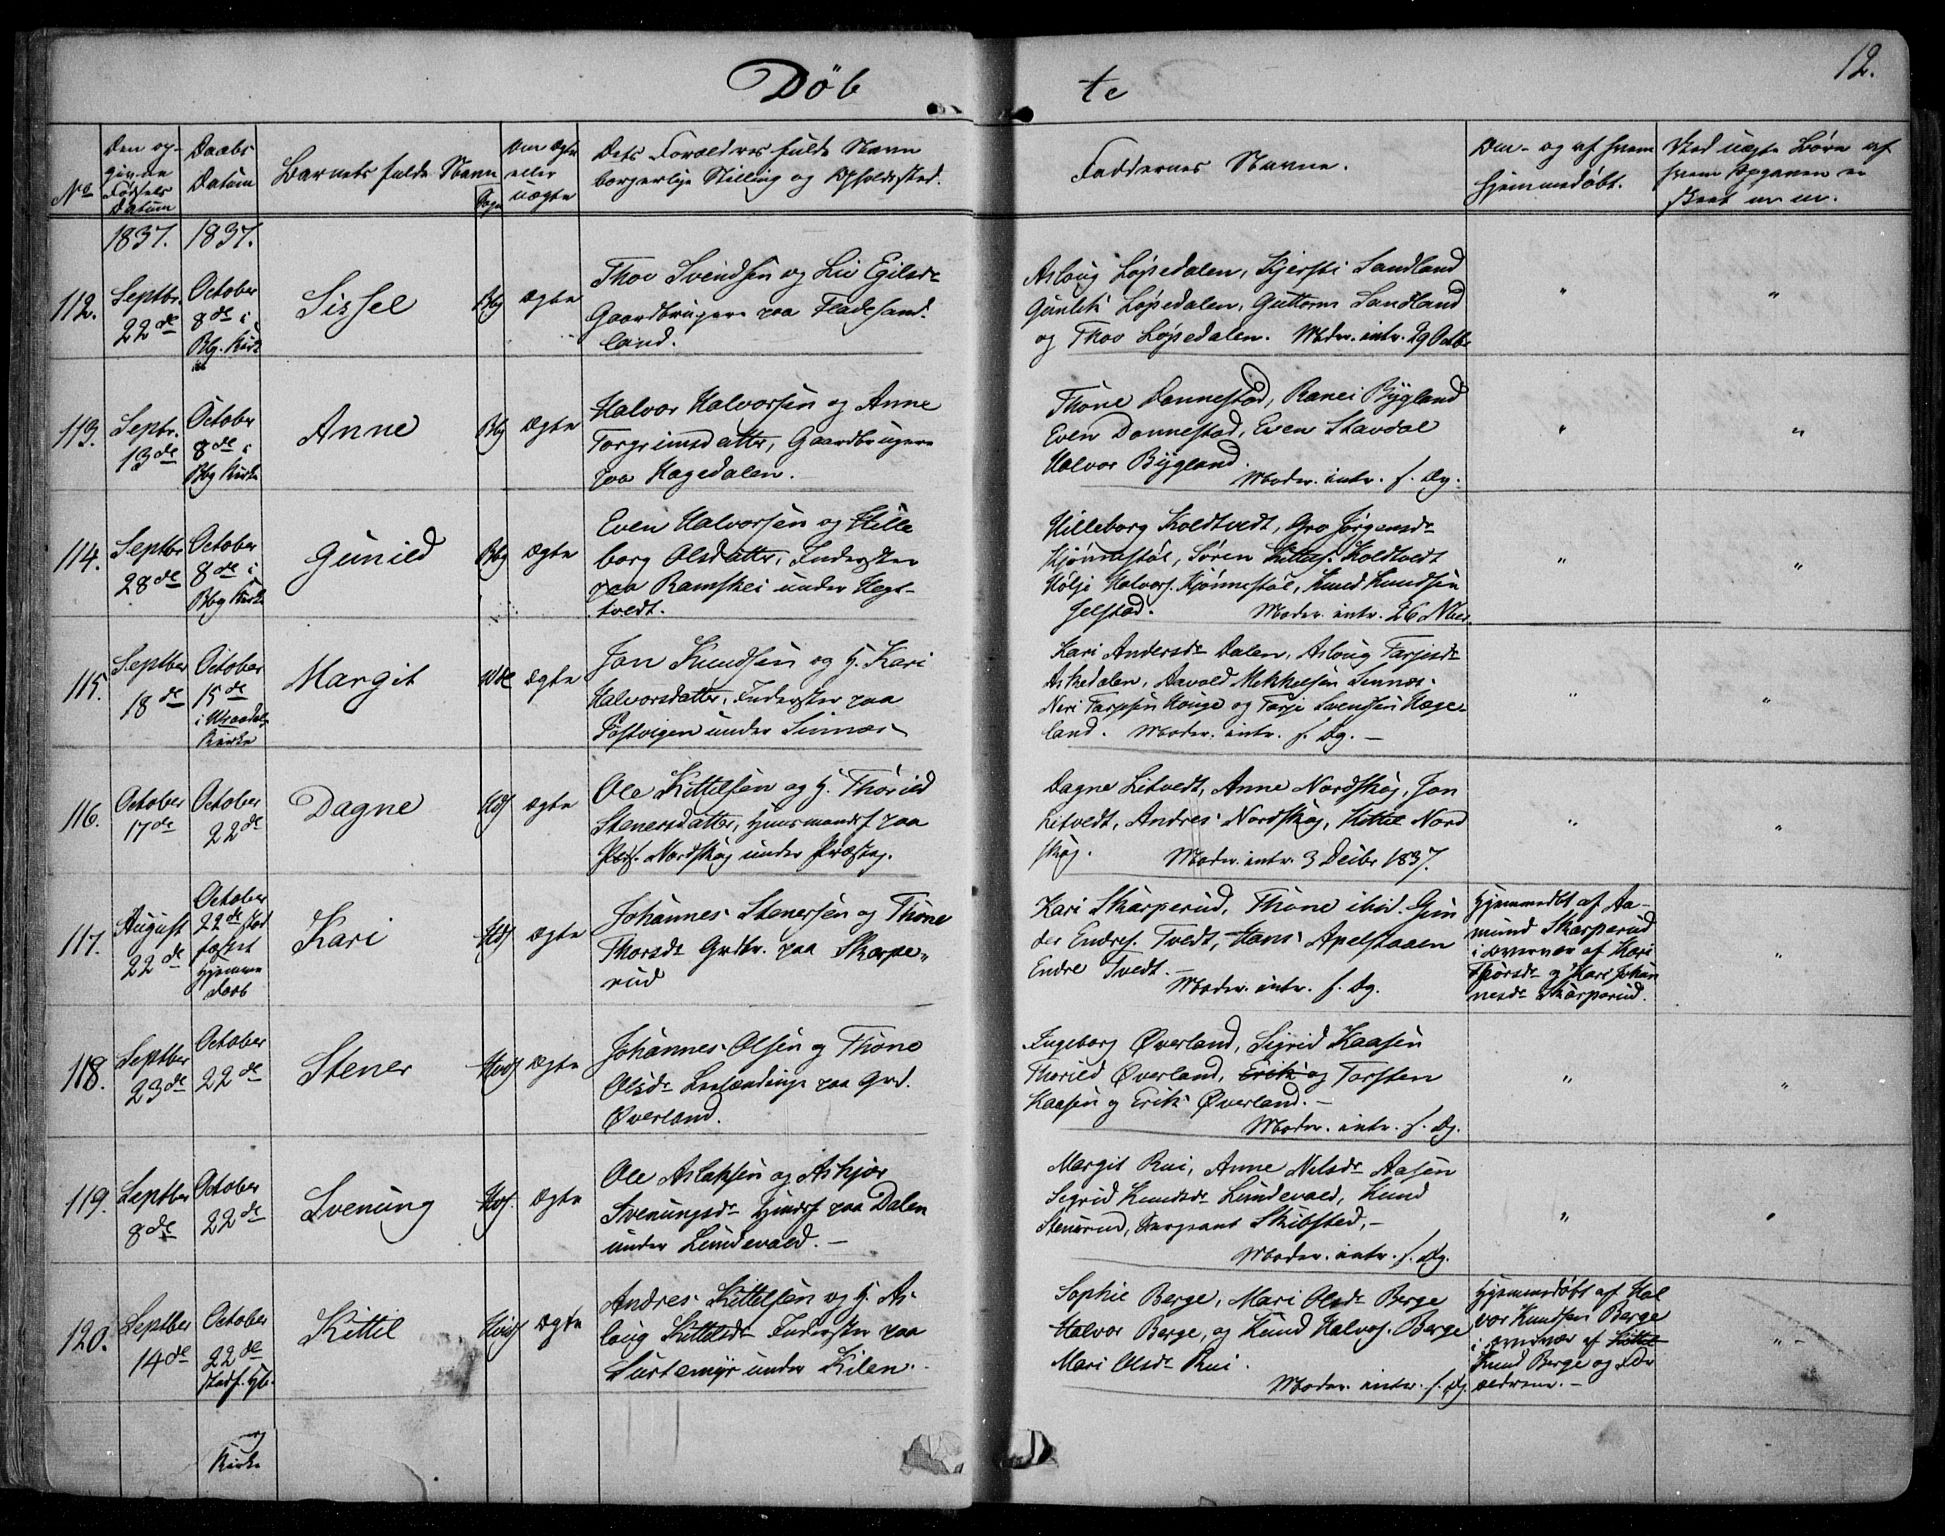 Døb te
12.
No
Den opgivne Fødsels Datum
Daabs Datum
Barnets fulde Navn
Sogn
Om ægte eller uægte
Dets Forældres fulde Navn borgerlige Stilling og Opholdssted.
Faddernes Navne.
Om- og af hvem hjemmedøbt.
Ved uægte Børn af hvem Opgaven er
1837. 1837.
112.
Septbr. 22de
October 8de i Bbg. Kirke
Sissel
Bbg
ægte
Thov Svendsen og Liv Egilsdr
Gaardbrugere paa Fladesand-
land.
Asloug Løpedalen, Kjersti Sandland
Gunlik Løpedalen, Guttorm Sandland
og Thov Løpedalen. Moder. intr. 29 Octbr
"
"
113.
Septr. 13de
October 8de i Bbg Kirke
Anne
Bbg
ægte
Halvor Halvorsen og Anne
Torgrimsdatter, Gaardbrugere
paa Hagedalen.
Thone Donnestad, Ranei Bygland
Even Donnestad, Even Stavdal
Halvor Bygland.
Moder. intr. s. Dg.
"
"
114.
Septbr 28de
October 8de i Bbg Kirke
Gunild
Bbg
ægte
Even Halvorsen og Hille
borg Olsdatter, Inderster
paa Ramskei under Hegt-
tvedt.
Hilleborg Koldtvedt, Gro Jørgensdr
Hjønnestøl, Søren Kittels. Koldtvedt
Hølje Halvors. Kjønnestøl, Knud Knudsen
Jelstad. Moder. intr. 26 Nber.
"
"
115.
Septber 18de
October 15de i Atraadals Kirke
Margit
Adl
ægte
Jon Knudsen og H. Kari
Halvorsdatter, Inderster paa
Østvigen under Sinnæs
Kari Andersdr Dalen, Asloug Tarjesdr
Askedalen, Aavold Mikkelsen Sinnes.
Neri Tarjesen Houge og Tarje Svendsen Hage-
land. Moder. intr. s. Dg. –
"
"
116.
October 17de
October 22de
Dagne
Hds
ægte
Ole Kittilsen og H. Thorild
Stenersdatter, Huusmandsf paa
Pds. Nordskog under Præsteg.
Dagne Litvedt, Anne Nordskog, Jon
Litvedt, Andres Nordskog, Kittil Nord
skog. Moder. intr. 3 Decbr 1837.
"
"
117.
August 22de
October 22de stad fæstet Hjemme daab
Kari
Hds
ægte
Johannes Stenersen og Thone
Thorsdr Grdbr. paa Skarpe-
rud
Kari Skarperud, Thone ibid. Gun
der Endres. Tvedt, Hans Apelstaaen
Endre Tvedt. –
Moder. intr. s. Dg.
Hjemmedbt af Aa-
mund Skarperud
i overvær af Kari
Thorsdr og Kari Johan
nesdr Skarperud.
"
118.
Septber 23de
October 22de
Stener
Hvds
ægte
Johannes Olsen og Thone
Olsdr Leilændinge paa Grd.
Øverland.
Ingeborg Øverland, Sigrid Kaasen
Thorild Øverland, Erik og Torsten
Kaasen og Erik Øverland. –
Moder. intr. s. Dg.
"
"
119.
Septber 8de
October 22de
Svenung
Hds.
ægte
Ole Aslaksen og Askjær
Svenungsdr Huusf paa Dalen
under Lundevald. –
Margit Rui, Anne Nilsdr Aasen
Sigrid Knudsdr Lundevald, Knud
Stenerud, Sergeant Skibsted, –
Moder. intr. s. Dg.
"
"
120.
Septber 14de
October 22de stadf. Hjb.
Kittil
Hvids
ægte
Andres Kittilsen og H. As-
loug Kittilsdr Inderster paa
Surtemyr under Kilen.
Sophie Berge, Mari Olsdr Berge
Halvor Berge, og Knud Halvors. Berge
Mari Olsdr Rui.
Moder. intr. s. Dg.
Hjemmedøbt af Hal
vor Knudsen Berge
i overvær af Kittil
Knud Berge og For
ældrene. –
"
Kirke